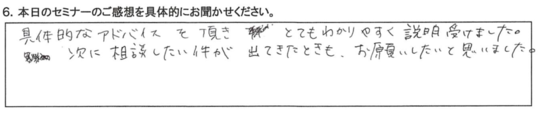 6. 本日のセミナーのご感想を具体的にお聞かせください。
具体的なアドバイスを頂き とてもわかりやすく説明受けました。
次に相談したい件が出てきたときも、お願いしたいと思いました。